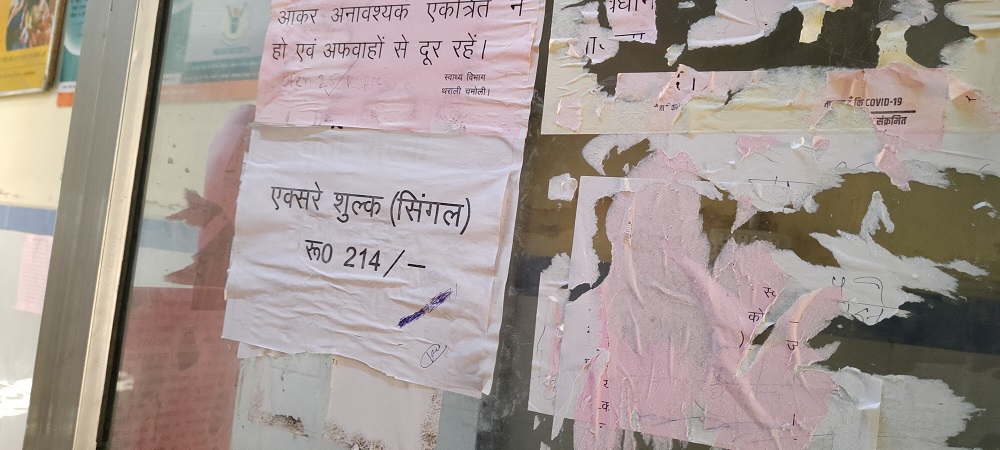 आकर अनावश्यक एकत्रित न
हो एवं अफवाहों से दूर रहें।
स्वास्थ्य विभाग
थराली चमोली।
एक्सरे शुल्क (सिंगल)
रू0 214/-
कि COVID-19
संक्रनित
को